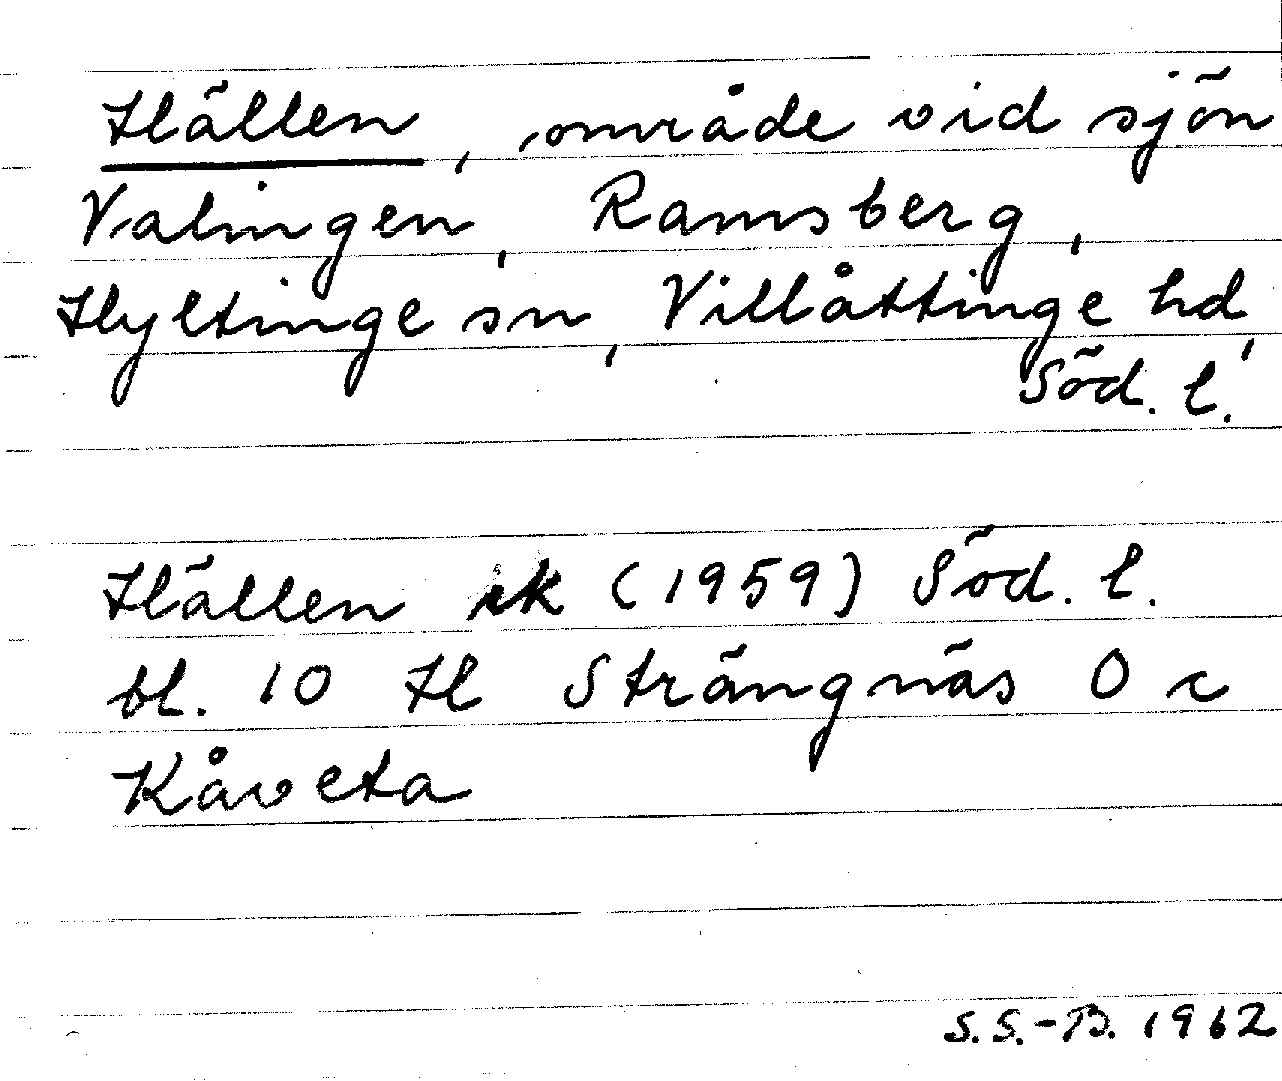 Hällen, område vid sjön
Valingen, Ramsberg,
Hyltinge sn, Villåttinge hd,
Söd. l.
Hällen ek (1959) Söd. l.
bl. 10 H Strängnäs O c
Kåveta
S.S.-B. 1962